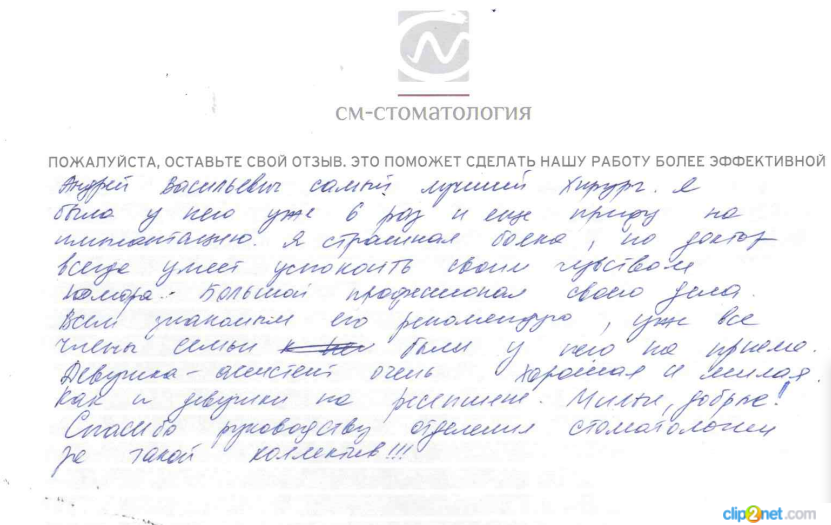 см-стоматология
ПОЖАЛУЙСТА, ОСТАВЬТЕ СВОЙ ОТЗЫВ. ЭТО ПОМОЖЕТ СДЕЛАТЬ НАШУ РАБОТУ БОЛЕЕ ЭФФЕКТИВНОЙ
Андрей Васильевич самый лучший хирург. Я
была у него уже 6 раз и еще приду на
имплантацию. Я страшная бояка, но доктор
всегда умеет успокоить своим чувством
юмора. Большой профессионал своего дела.
Всем знакомым его рекомендую, уже все
члены семьи были у него на приеме.
Девушка-асистент очень хорошая и милая.
Как и девушки на ресепшене. Милые, добрые!
Спасибо руководству отделения стоматологии
за такой коллектив!!!
clip2net.com